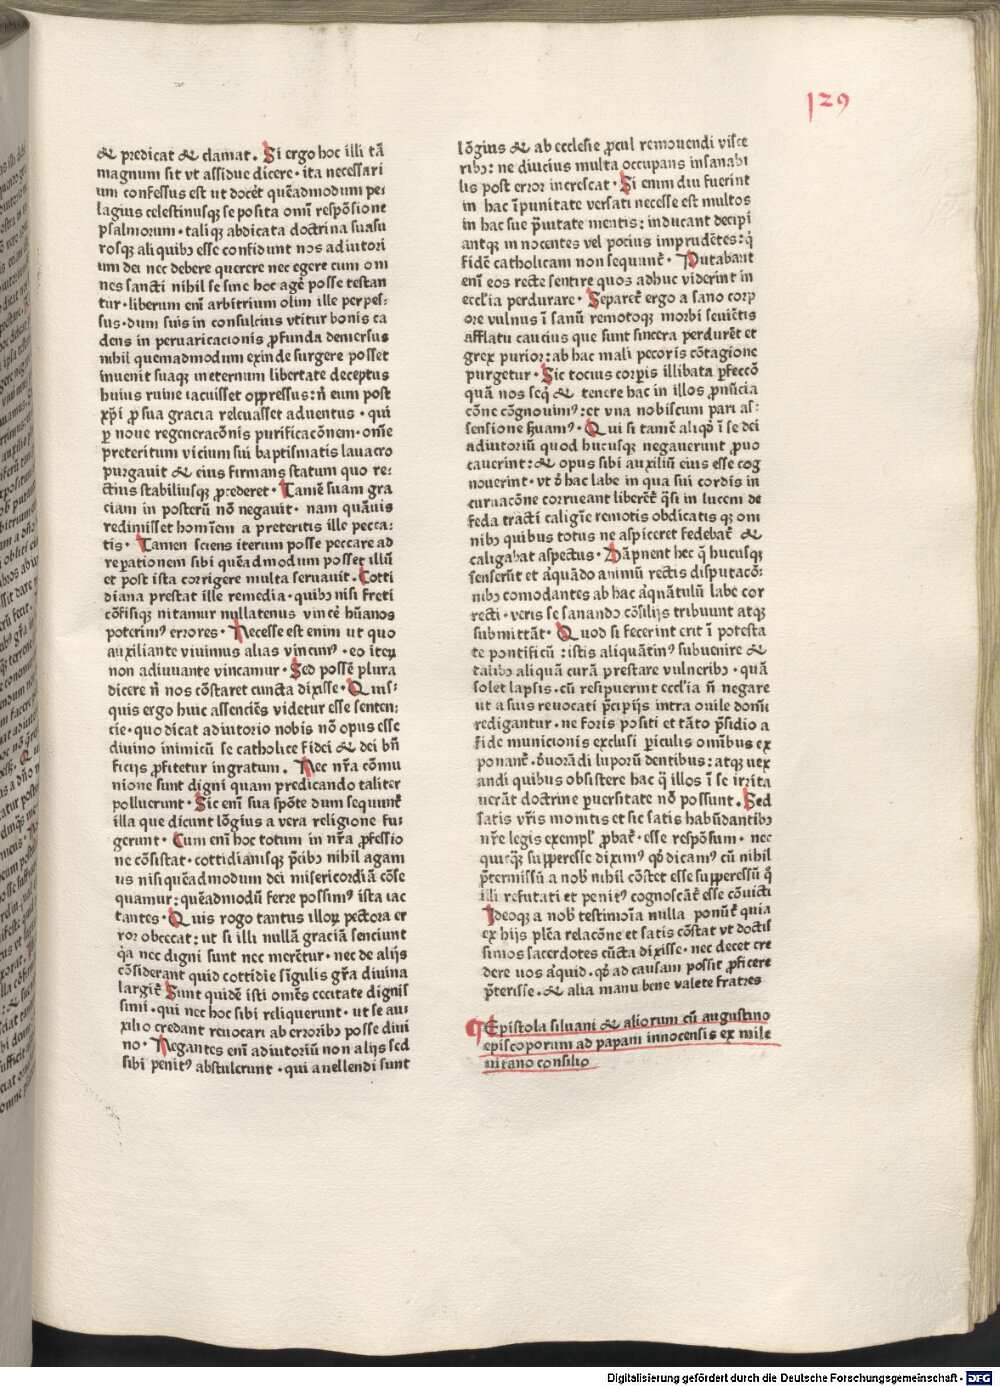 129
& predicat & clamat. Si ergo hoc illi tā
magnum sit vt assidue dicere · ita necessari
um confessus est ut docēt quēadmodum pe⸗
lagius celestinusqȝ se posita omī respōsione
psalmorum · taliqȝ abdicata doctrina suasu
rosqȝ aliquibȝ esse confidunt nos adiutori
um dei nec debere querere nec egere cum om
nes sancti nihil se sine hoc agē posse testan
tur · liberum enī arbitrium olim ille perpes⸗
sus · dum suis in consulcius vtitur bonis ca
dens in peruaricacionis ꝓfunda demersus
nihil quemadmodum exinde surgere posset
inuenit suaqȝ in eternum libertate deceptus
huius ruine iacuisset oppressus: n̄ eum post
xp̄i ꝓ sua gracia releuasset aduentus · qui
ꝑ noue regeneracōnis purificacōnem · om̄e
preteritum vicium sui baptismatis lauacro
purgauit & eius firmans statum quo re⸗
ctius stabiliusqȝ ꝓcederet · Tamē suam gra
ciam in posterū nō negauit · nam quāuis
redimisset homīem a preteritis ille pecca⸗
tis · Tamen sciens iterum posse peccare ad
reꝑationem sibi quēadmodum posset illū
et post ista corrigere multa seruauit · Cotti
diana prestat ille remedia · quibȝ nisi freti
cōfisiqȝ nitamur nullatenus vincē hūanos
poterimꝰ errores · Necesse est enim ut quo
auxiliante viuimus alias vincimꝰ · eo iteꝝ
non adiuuante vincamur · Sed possē plura
dicere n̄ nos cōstaret cuncta dixisse · Quis⸗
quis ergo huic assenciēs videtur esse senten⸗
cie · quo dicat adiutorio nobis nō opus esse
diuino inimicū se catholice fidei & dei bn̄
ficijs ꝓfitetur ingratum. Nec nr̄a cōmu
nione sunt digni quam predicando taliter
polluerunt · Sic enī sua spōte dum sequunt̄
illa que dicunt lōgius a vera religione fu⸗
gerunt · Cum enī hoc totum in nr̄a ꝓfessio
ne cōsistat · cottidianisqȝ p̄cibȝ nihil agam
us nisi quēadmodum dei misericordiā cōse
quamur: quēadmodū ferre possimꝰ ista iac
tantes · Quis rogo tantus illoꝝ pectora er
ror obcecat: ut si illi nullā graciā senciunt
q̇a nec digni sunt nec merētur · nec de alijs
cōsiderant quid cottidie sīgulis gr̄a diuina
largit̄ · Sunt quidē isti om̄es cecitate dignis
simi · qui nec hoc sibi reliquerunt · ut se au⸗
xilio credant reuocari ab erroribȝ posse diui
no · Negantes enī adiutoriū non alijs sed
sibi penitꝰ abstulerunt · qui auellendi sunt
lōgius & ab ecclesie ꝓcul remouendi visce
ribȝ: ne diucius multa occupans insanabi
lis post error increscat · Si enim diu fuerint
in hac īpunitate versati necesse est multos
in hac sue p̄uitate mentis: inducant decipi
antqȝ innocentes vel pocius imprudētes: q̇
fidē catholicam non sequunt̄ · Putabant
enī eos recte sentire quos adhuc viderint in
eccl'ia perdurare · Separet̄ ergo a sano corp
ore vulnus ī sanū remotoqȝ morbi seuiētis
afflatu caucius que sunt sincera perdurēt et
grex purior: ab hac mali pecoris cōtagione
purgetur · Sic tocius corꝑis illibata ꝑfeccō
quā nos seq̇ & tenere hac in illos ꝓnūcia
cōne cōgnouimꝰ: et vna nobiscum pari as⸗
sensione ẜuamꝰ · Qui si tamē aliqȝ ī se dei
adiutoriū quod hucusqȝ negauerunt ꝓuo
cauerint: & opus sibi auxiliū eius esse cog
nouerint · vt ab hac labe in qua sui cordis in
curuacōne corrueant liberēt̄ q̄si in lucem de
feda tracti caligīe remotis obdicatis qȝ om
nibȝ quibus totus ne aspiceret fedebat̄ &
caligabat aspectus · Dāpnent hec q̄ hucusqȝ
senserūt et aq̄uādo animū rectis disputacō⸗
nibȝ comodantes ab hac aq̄uātulū labe cor
recti · veris se sanando cōsilijs tribuunt atqȝ
submittāt · Quod si fecerint erit ī potesta
te pontificū: istis aliquātimꝰ subuenire &
talibȝ aliquā curā prestare vulneribȝ · quā
solet lapsis · cū resipuerint eccl'ia n̄ negare
ut a suis reuocati p̄cipijs intra ouile domī
redigantur · ne foris positi et tāto p̄sidio a
fide municionis exclusi ꝑiculis om̄ibus ex
ponant̄ · deuorādi luporū dentibus: atqȝ uex
andi quibus obsistere hac q̄ illos ī se irrita
uerāt doctrine ꝑuersitate nō possunt · Sed
satis vr̄is monitis et sic satis habūdantibȝ
nr̄e legis exempl' ꝓbat̄ · esse respōsum · nec
quicq̄ȝ supperesse diximꝰ qȝ dicamꝰ cū nihil
p̄termissū a nobis nihil cōstet esse suppressū q̇
illi refutati et penitꝰ cognoscāt̄ esse cōuicti
Ideoqȝ a nobis testimoīa nulla ponūt̄ quia
ex hijs plēa relacōne et satis cōstat vt doctis
simos sacerdotes cūcta dixisse · nec decet cre
dere uos aq̇uid · qȝ ad causam possit ꝓficere
p̄terisse · & alia manu bene valete fratres
¶ Epistola siluani & aliorum cū augustino
episcoporum ad papam innocensis ex mile
uitano consilio
Digitalisierung gefördert durch die Deutsche Forschungsgemeinschaft - DFG